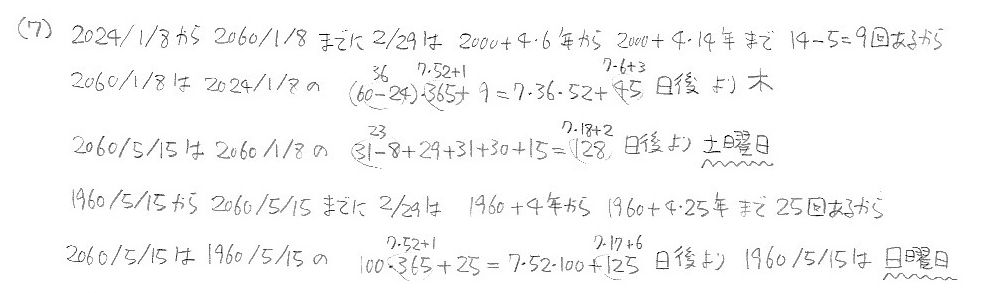 (7) 2024/1/8から 2060/1/8 までに 2/29は 2000+4・6年から 2000+4・14年まで 14-5=9回あるから
36 7・52+1 7・6+3
2060/1/8は 2024/1/8の (60-24)・365+9=7・36・52+45 日後より 木
23 7・18+2
2060/5/15は 2060/1/8の (31-8+29+31+30+15=128 日後より 土曜日
1960/5/15から 2060/5/15までに 2/29は 1960+4年から 1960+4・25年まで 25回あるから
7・52+1 7・17+6
2060/5/15は 1960/5/15の 100・365+25=7・52・100+125 日後より 1960/5/15は 日曜日